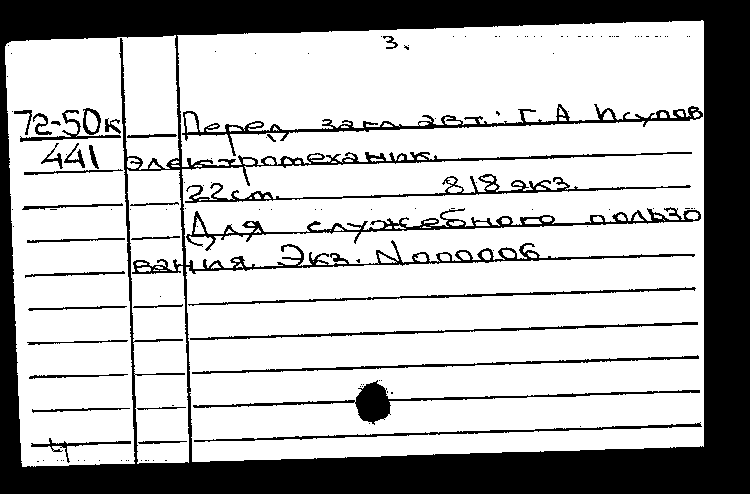 3.
72-50к Перед загл. авт.: Г. А. Юсупов
441 электромеханик.
22 см. 818 экз.
Для служебного пользо
вания. Экз. N000006.
4